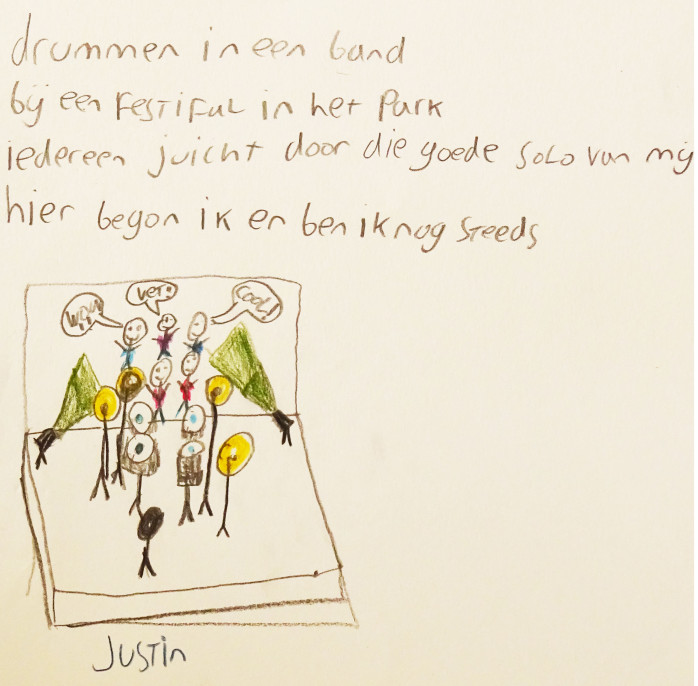 drummen in een band
bij een FESTiFUL in het Park
iedereen juicht door die goede solo van mij
hier begon ik en ben ik nog steeds
WOW!
VET!
COOL!
JUSTin